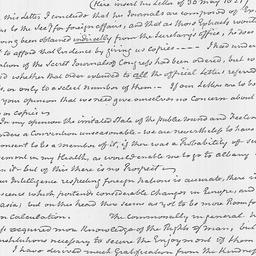 (Here insert his letter of 30 May 1821
this letter I conclude that his Journals are composed of Ext
to the Sec.y (for foreign affairs, and that as those Extracts would
ving been obtained indirectly from the Secretary's office, he does
to afford that Evidence by giving us copies ---- I had under
ation of the Secret Journals of Congress had been ordered, but w
d whether that order extended to all the official Letters referred
s, or only to a select number of them -- If our Letters are to be
you opinion that we need give ourselves no concern about
copies
In my opinion the irritated State of the public mind and Feelin
nders a Convention unseasonable - we are nevertheless to have
onsent to be a member of it, if there was a Probability of su
ement in my Health, as would enable me to go to albany
n it - but of this there is no Prospect
ur Intelligence respecting foreign nations is accurate, there is
scence which portends considerable Changes in Europe, and
asia; but on that head there seems as yet to be more Room fo
n Calculation. The Commonalty in general h
s acquired more Knowledge of the Rights of man, but
nstitutions necessary to secure the Enjoyment of them
I have derived much gratification from the Kindness